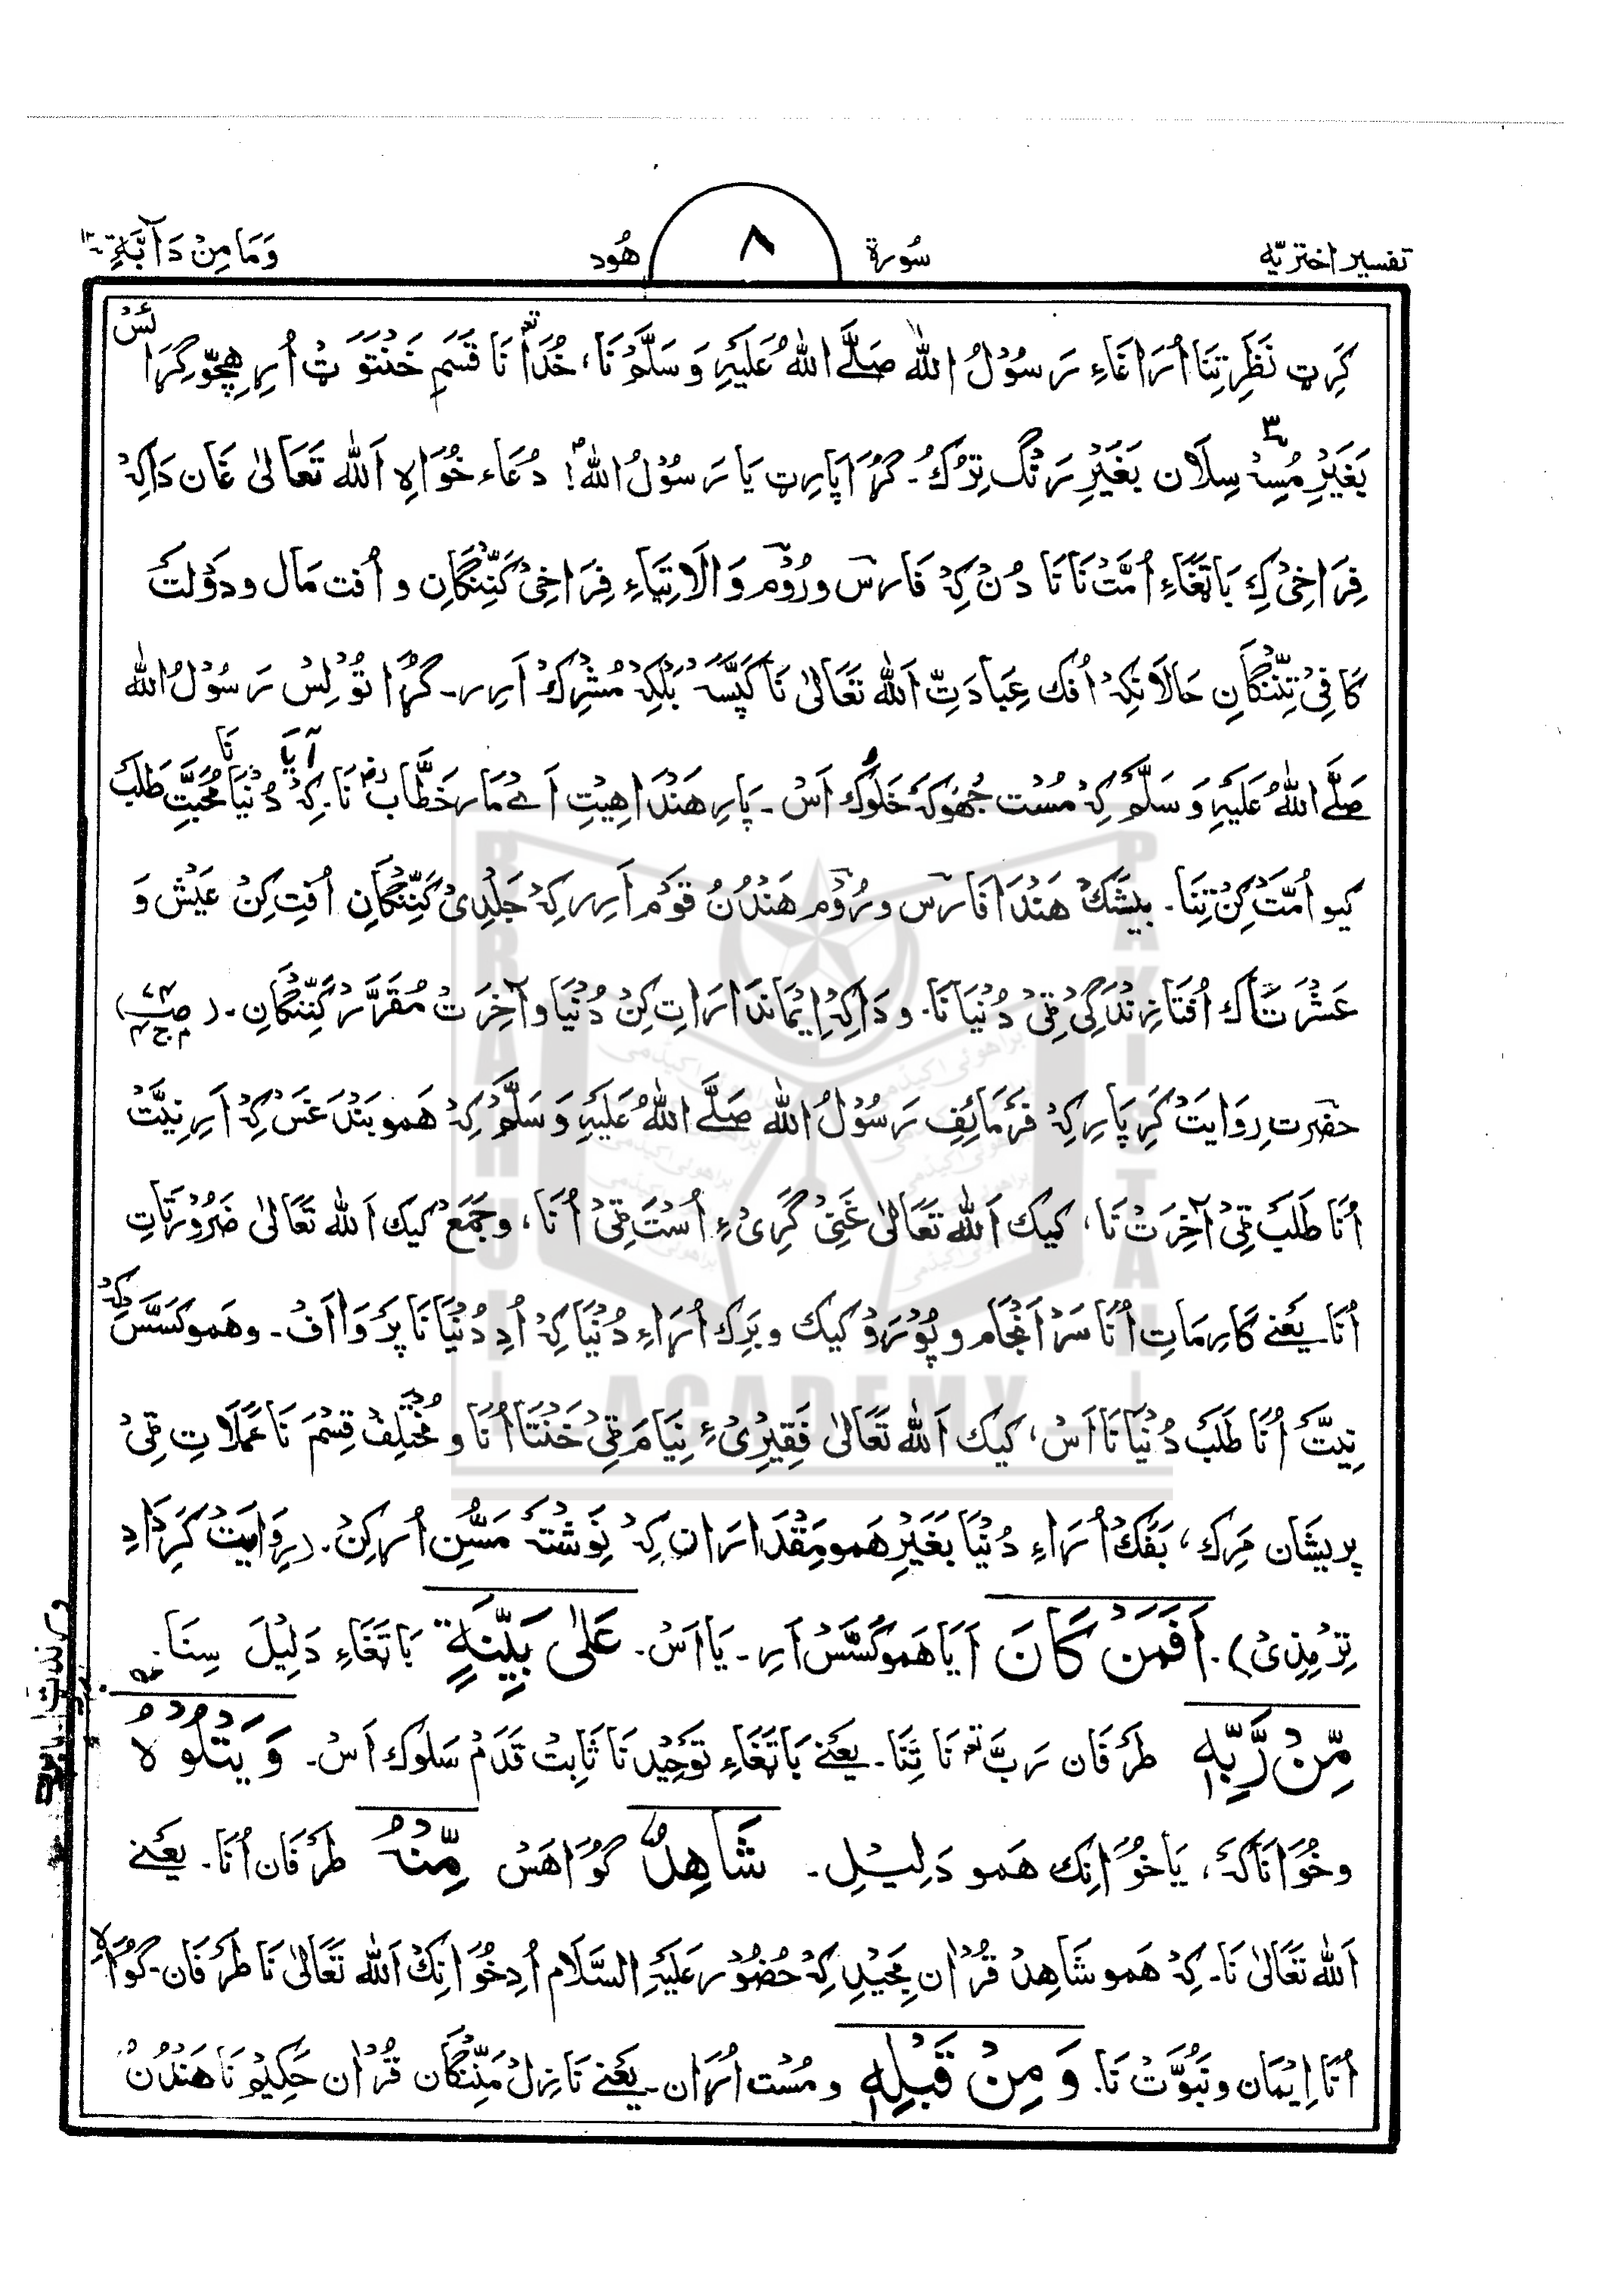 تفسیر اختریّه سُورة ٨ هُود وَمَا مِنْ دَآبَّةٍ ١٢
کَرِت نَظَرِ تِنَا اُرَاغَاءِ رَسُوْلُ الله صَلَّے اللهُ عَلَیْهِ وَسَلَّمْ نَا، خُدَا تع نَا قَسَم خَنْتَوَ ٹ اُرِ هِچّو گِرَا ئس
بَغَیْرِ مُسِہْ ٣ سِلَان بَغَیْرِ رَنْگ تِرُکْ۔ گُڑَا پَارِٹ یَا رَسُوْلُ اللهِ! دُعَاء خُوَاہِ اَلله تَعَالیٰ غَان دَاکِہْ
فِرَاخِیْ کِ بَاتَغَاءِ اُمَّتْ نَا نَا دُنْ کِہْ فَارس و رُوْم وَالَاتِیَاءِ فِرَاخِیْ کَنِّنْگَانِ و اُفت مَال و دَوْلَتْ
کَافِیْ تِنِّنْگَانِ حَالَانِکِہْ اُفک عِبَادَتِ اَلله تَعَالیٰ نَا کَپَّسَہْ بَلْکِہْ مُشْرِکْ اَرِر۔ گُڑَا تُوْلِسْ رَسُوْلُ الله
صَلَّے اللهُ عَلَیْهِ وَسَلَّمْ کِہْ مُسْت جُھوکَہْ خَلُوک اَسْ۔ پَارِ هَنْدَا هِیْتِ اَےْ مَار خَطَّاب رض نَا۔ کِہْ آیَا دُنْیَا نَا مُحَبَّتِ طَلَبْ
کیو اُمَّتْ کِنْ تِنَا۔ بیشَکْ هَنْدَا فَارس و رُوْم هَنْدُنُ قَوْم اَرِر کِہْ جَلْدِیْ کَنِّنْگَانِ اُفتِ کِنْ عَیْش وَ
عَشْرَتَاک اُفتَا زِنْدَگِیْ ٹِیْ دُنْیَا نَا۔ و دَاکِہْ اِیْمَانْدَارَاتِ کِنْ دُنْیَا و آخِرَتْ مُقَرَّرْ کَنِّنْگَانِ۔ (صـ٧٤ م ج ٣)
حضرت رِوَایَتْ کَرِ پَارِ کِہْ فَرْمَائِفِ رَسُوْلُ الله صَلَّے اللهُ عَلَیْهِ وَسَلَّمْ کِہْ هَمو بَنْدَغَسْ کِہْ اَرِ نِیَّتْ
اُنَا طَلَبَ ٹِیْ آخِرَتْ نَا، کیک اَلله تَعَالیٰ غَنِیْ گَرِیْ ءِ اُسْتَ ٹِیْ اُنَا، و جَمَعْ کیک اَلله تَعَالیٰ ضَرُوْرَتَاتِ
اُنَا یَعْنے کَارِمَاتِ اُنَا سَرْاَنْجَام و پُوْرَوْ کیک و بَرِک اُرَاءِ دُنْیَا کِہْ اُدِ دُنْیَا نَا پَرْوَا اَفْ۔ و هَمو کَسَّسْ کِہْ
نِیَّتَ اُنَا طَلَبْ دُنْیَا نَا اَسْ، کیک اَلله تَعَالیٰ فَقِیْرِیْ ءِ نِیَامَ ٹِیْ خَنْتَا اُنَا و مُخْتَلِفْ قِسْمَ نَا عَمَلَاتِ ٹِیْ
پریشَان مَرِک، بَفَکْ اُرَاءِ دُنْیَا بَغَیْرِ هَمو مِقْدَارَان کِہْ نِوِشْتَہْ مَسُّنِ اُر کِنْ۔ (رِوَایَتْ کَرِ دَادِ
تِرْمِذِیْ)۔ اَفَمَنْ کَانَ اَیَا هَمو کَسَّسْ اَرِ۔ یَا اَسْ۔ عَلٰی بَیِّنَةٍ بَاتَغَاءِ دَلِیْلَ سِنَا۔
مِّنْ رَّبِّہٖ طَرَفَان رَبَّ تع نَا تِنَا۔ یَعْنے بَاتَغَاءِ تَوْحِیْدِ نَا ثَابِتْ قَدَمْ سَلوک اَسْ۔ وَیَتْلُوْہُ
و خُوَانَاکَہْ، یَا خُوَانِک هَمو دَلِیْلِ۔ شَاهِدٌ گوَاهَسْ مِّنْهُ طَرَفَان اُنَا۔ یَعْنے
اَلله تَعَالیٰ نَا۔ کِہْ هَمو شَاهِدْ قُرْاٰن مَجِیْدِ کِہْ حُضُوْر عَلَیْهِ السَّلَام اُدِ خُوَانِکْ اَلله تَعَالیٰ نَا طَرَفَان۔ گوَاہ
اُنَا اِیْمَان و نَبُوَّتْ نَا۔ وَمِنْ قَبْلِہٖ و مُسْت اُرَان۔ یَعْنے نَازِلْ مَنِّنْگَان قُرْاٰن حَکِیْم نَا هَنْدُنْ
BRAHUI ACADEMY PAKISTAN
براهوئی اکیڈمی